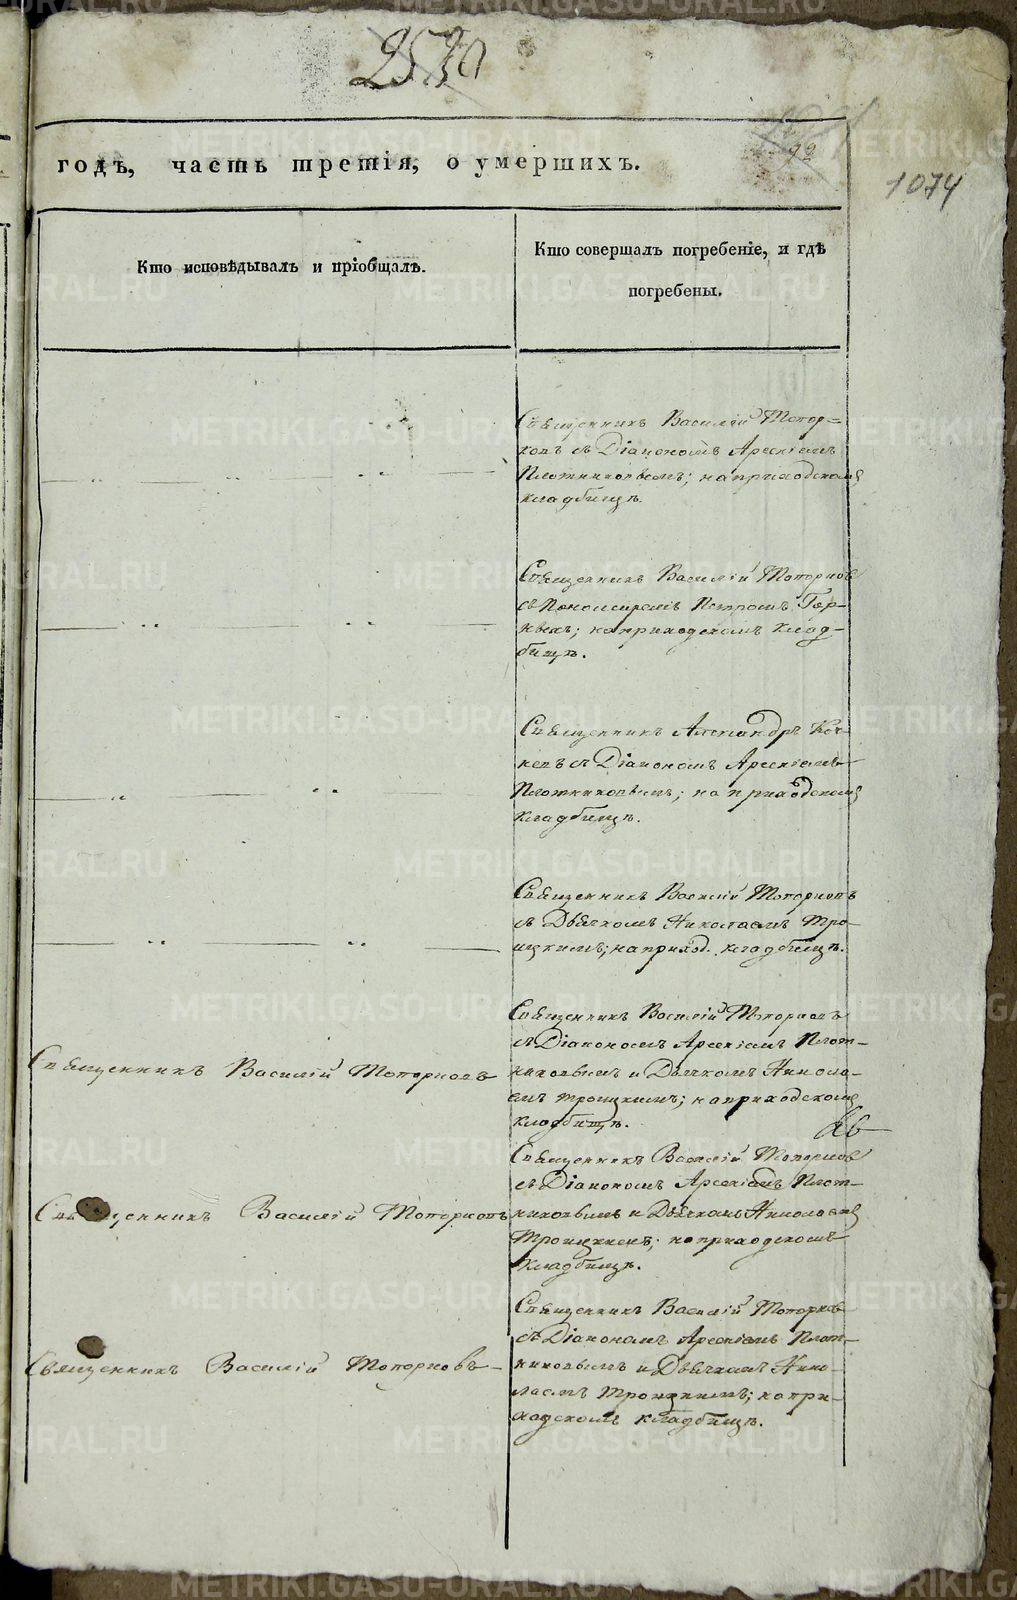 253а
92
1074
годъ, часть третія, о умершихъ.
Кто исповѣдывалъ и пріобщалъ.
Кто совершалъ погребеніе, и гдѣ
погребены.
Священникъ Василій Топор=
ковъ съ Діакономъ Арсеніемъ
Плотниковымъ; на приходскомъ
кладбищѣ.
Священникъ Василій Топорковъ
съ Пономаремъ Петромъ
на приходскомъ клад-
бищѣ.
Священникъ Александръ
съ Діакономъ Арсеніемъ
Плотниковымъ; на приходскомъ
кладбищѣ.
Священникъ Василій Топорковъ
съ Дьячкомъ Николаемъ Тро-
ицкимъ; на приход. кладбищѣ.
Священникъ Василій Топорковъ
Священникъ Василій Топорковъ
съ Діакономъ Арсеніемъ Плот-
никовымъ и Дьячкомъ Никола-
емъ Троицкимъ; на приходскомъ
кладбищѣ.
Священникъ Василій Топорковъ
Священникъ Василій Топорковъ
съ Діакономъ Арсеніемъ Плот-
никовымъ и Дьячкомъ Николаемъ
Троицкимъ; на приходскомъ
кладбищѣ.
Священникъ Василій Топорковъ
Священникъ Василій Топорковъ
съ Діакономъ Арсеніемъ Плот-
никовымъ и Дьячкомъ Нико-
лаемъ Троицкимъ; на при-
ходскомъ кладбищѣ.
METRIKI.GASO-URAL.RU